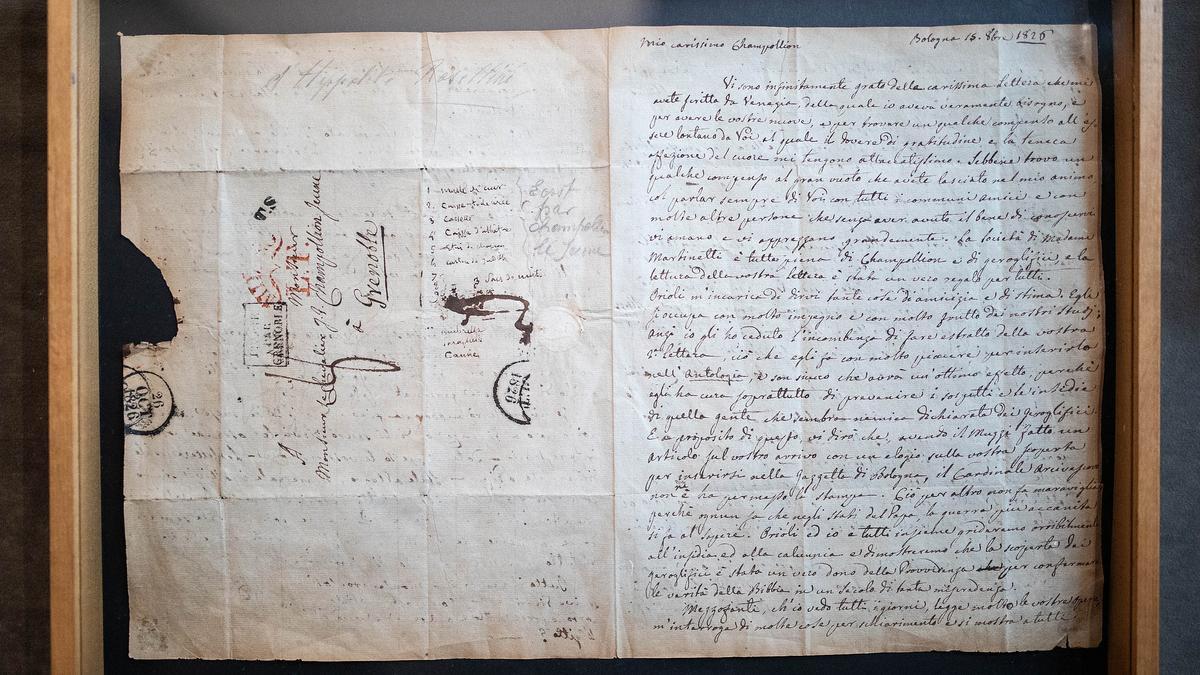 d'Hippolito Rosellini
A
Monsieur
Monsieur le Chevalier J. F. Champollion Jeune
à
Grenoble
GRENOBLE
26
OCT
1826
1826
Champollion
le Jeune
Canne
Mio carissimo Champollion
Bologna 15. 8bre 1826
Vi sono infinitamente grato della carissima lettera che mi
avete scritta da Venezia, della quale io aveva veramente bisogno, e
per avere le vostre nuove, e per trovare un qualche compenso all'es-
sere lontano da Voi al quale il dovere di gratitudine e la tenace
affezione del cuore mi tengono attaccatissimo. Sebbene trovo un
qualche compenso al gran vuoto che avete lasciato nel mio animo
col parlar sempre di Voi con tutti i communi amici e con
molte altre persone che senza aver avuto il bene di conoscervi
vi amano e vi apprezzano grandemente. La società di Madame
Martinetti è tutta piena di Champollion e di geroglifici, e la
lettura della vostra lettera è stata un vero regalo per tutti.
Orioli m'incarica di dirvi tante cose di amicizia e di stima. Egli
si occupa con molto impegno e con molto frutto de' nostri studj;
anzi io gli ho ceduto l'incombenza di fare estratto della vostra
2ª lettera, ciò che egli fa con molto piacere per inserirlo
nell'Antologia, e son sicuro che avrà un'ottimo effetto, perchè
egli ha cura soprattutto di prevenire i sospetti e le insidie
di quella gente che sembra nemica dichiarata dei geroglifici.
E a proposito di questo, vi dirò che, avendo il Muzzi fatto un
articolo sul vostro arrivo con un elogio sulla vostra scoperta
per inserirsi nella Gazzetta di Bologna, il Cardinale Arcivescovo
non ne ha permesso la stampa. Ciò per altro non fa maraviglia
perchè ognun sa che negli stati del Papa la guerra più accanita
si fa al sapere. Orioli ed io e tutti insieme grideremo orribilmente
all'insidia ed alla calunnia e dimostreremo che la scoperta dei
geroglifici è stata un vero dono della Provvidenza per confermare
le verità della Bibbia in un secolo di tanta miscredenza.
Mezzofanti, ch'io vedo tutti i giorni, legge molto le vostre opere,
m'interroga di molte cose per schiarimento e si mostra a tutti